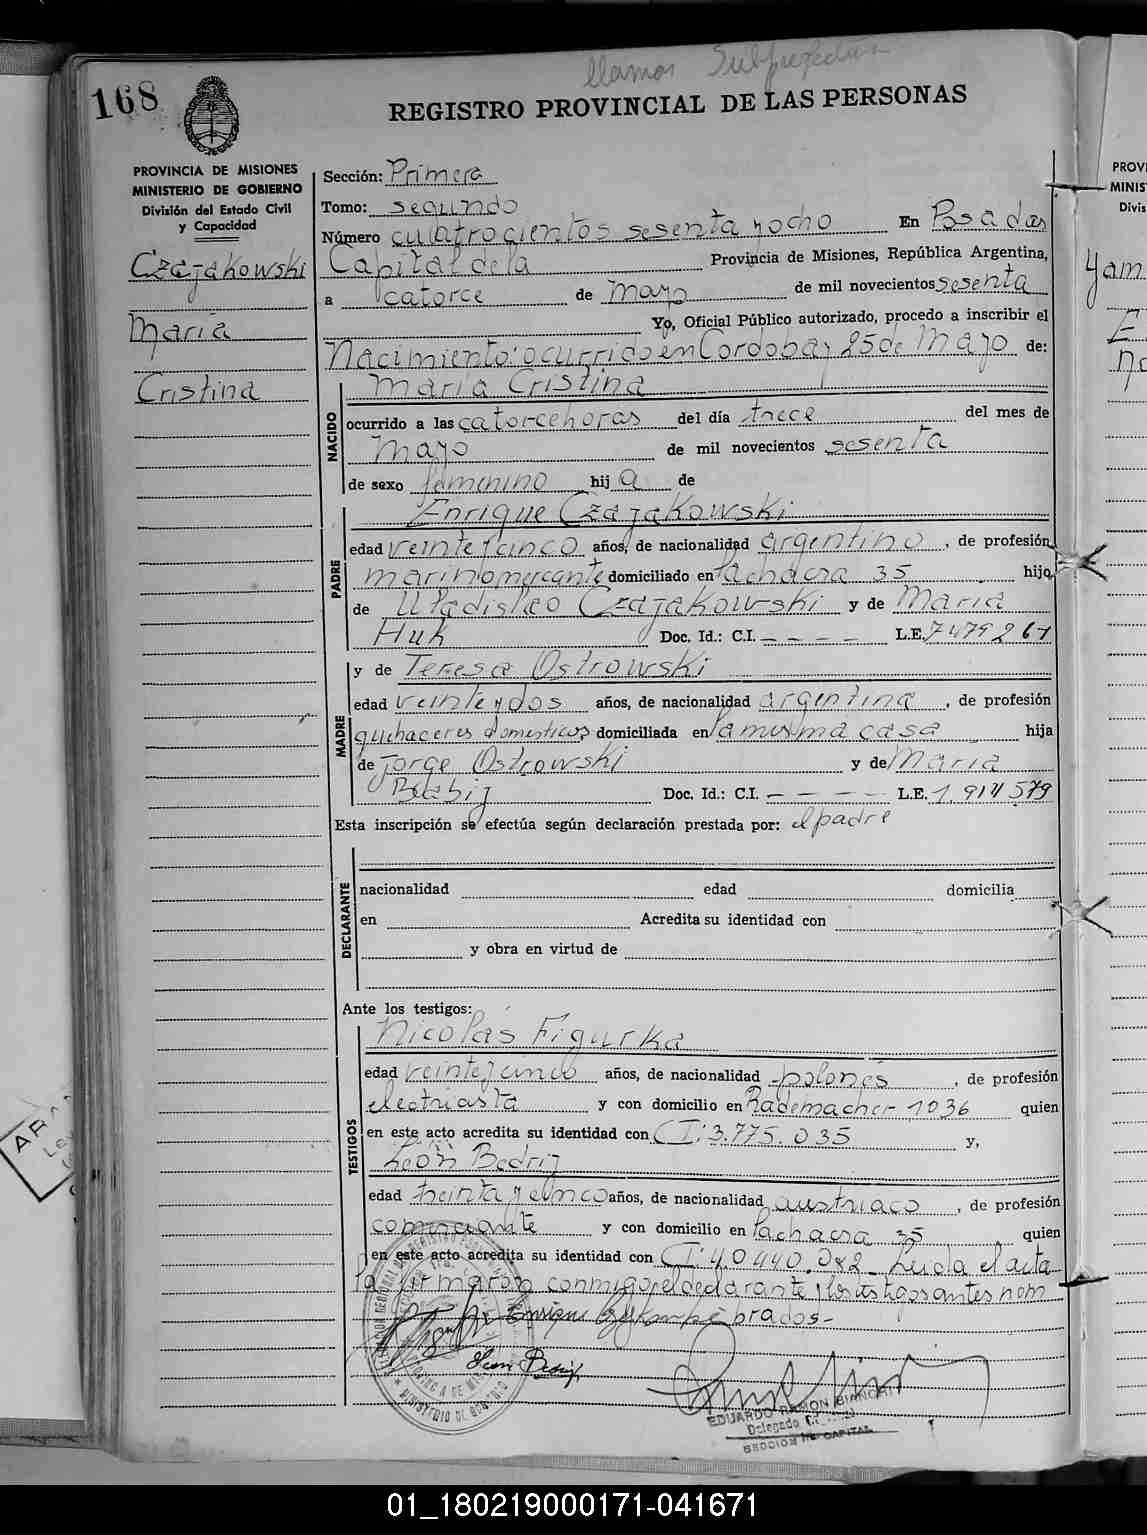 llamos
168
REGISTRO PROVINCIAL DE LAS PERSONAS
PROVINCIA DE MISIONES
MINISTERIO DE GOBIERNO
División del Estado Civil
y Capacidad
Czajakowski
Maria
Cristina
Sección: Primera
Tomo: segundo
Número cuatrocientos sesenta y ocho En Posadas
Capital de la Provincia de Misiones, República Argentina,
a catorce de Mayo de mil novecientos sesenta
Yo, Oficial Público autorizado, procedo a inscribir el
Nacimiento: ocurrido en Cordoba y 25 de Mayo de:
NACIDO
Maria Cristina
ocurrido a las catorce horas del día trece del mes de
Mayo de mil novecientos sesenta
de sexo femenino hij a de
PADRE
Enrique Czajakowski
edad veinte y cinco años, de nacionalidad argentino, de profesión
marino mercante domiciliado en Lachacra 35 hijo
de Uladislao Czajakowski y de Maria
Huk Doc. Id.: C.I. – – – – L.E. 7479261
MADRE
y de Teresa Ostrowski
edad veinte y dos años, de nacionalidad argentina, de profesión
quehaceres domesticos domiciliada en la misma casa hija
de Jorge Ostrowski y de Maria
Doc. Id.: C.I. – – – – L.E. 1.914579
Esta inscripción se efectúa según declaración prestada por: el padre
DECLARANTE
nacionalidad edad domicilia
en Acredita su identidad con
y obra en virtud de
Ante los testigos:
TESTIGOS
Nicolás Figurka
edad veinte y cinco años, de nacionalidad polonés, de profesión
electricista y con domicilio en Rademacher 1036 quien
en este acto acredita su identidad con CI: 3.775.035 y,
León Bedrij
edad treinta y cinco años, de nacionalidad austriaco, de profesión
comerciante y con domicilio en Lachacra 35 quien
en este acto acredita su identidad con CI: 4.0440.082. Leida el acta
la firmaron conmigo el declarante y los testigos antes nom
brados-
EDUARDO RAMON BIANCHI
Delegado
SECCION 1a. CAPITAL
PROV
MINIS
Divis
01_180219000171-041671